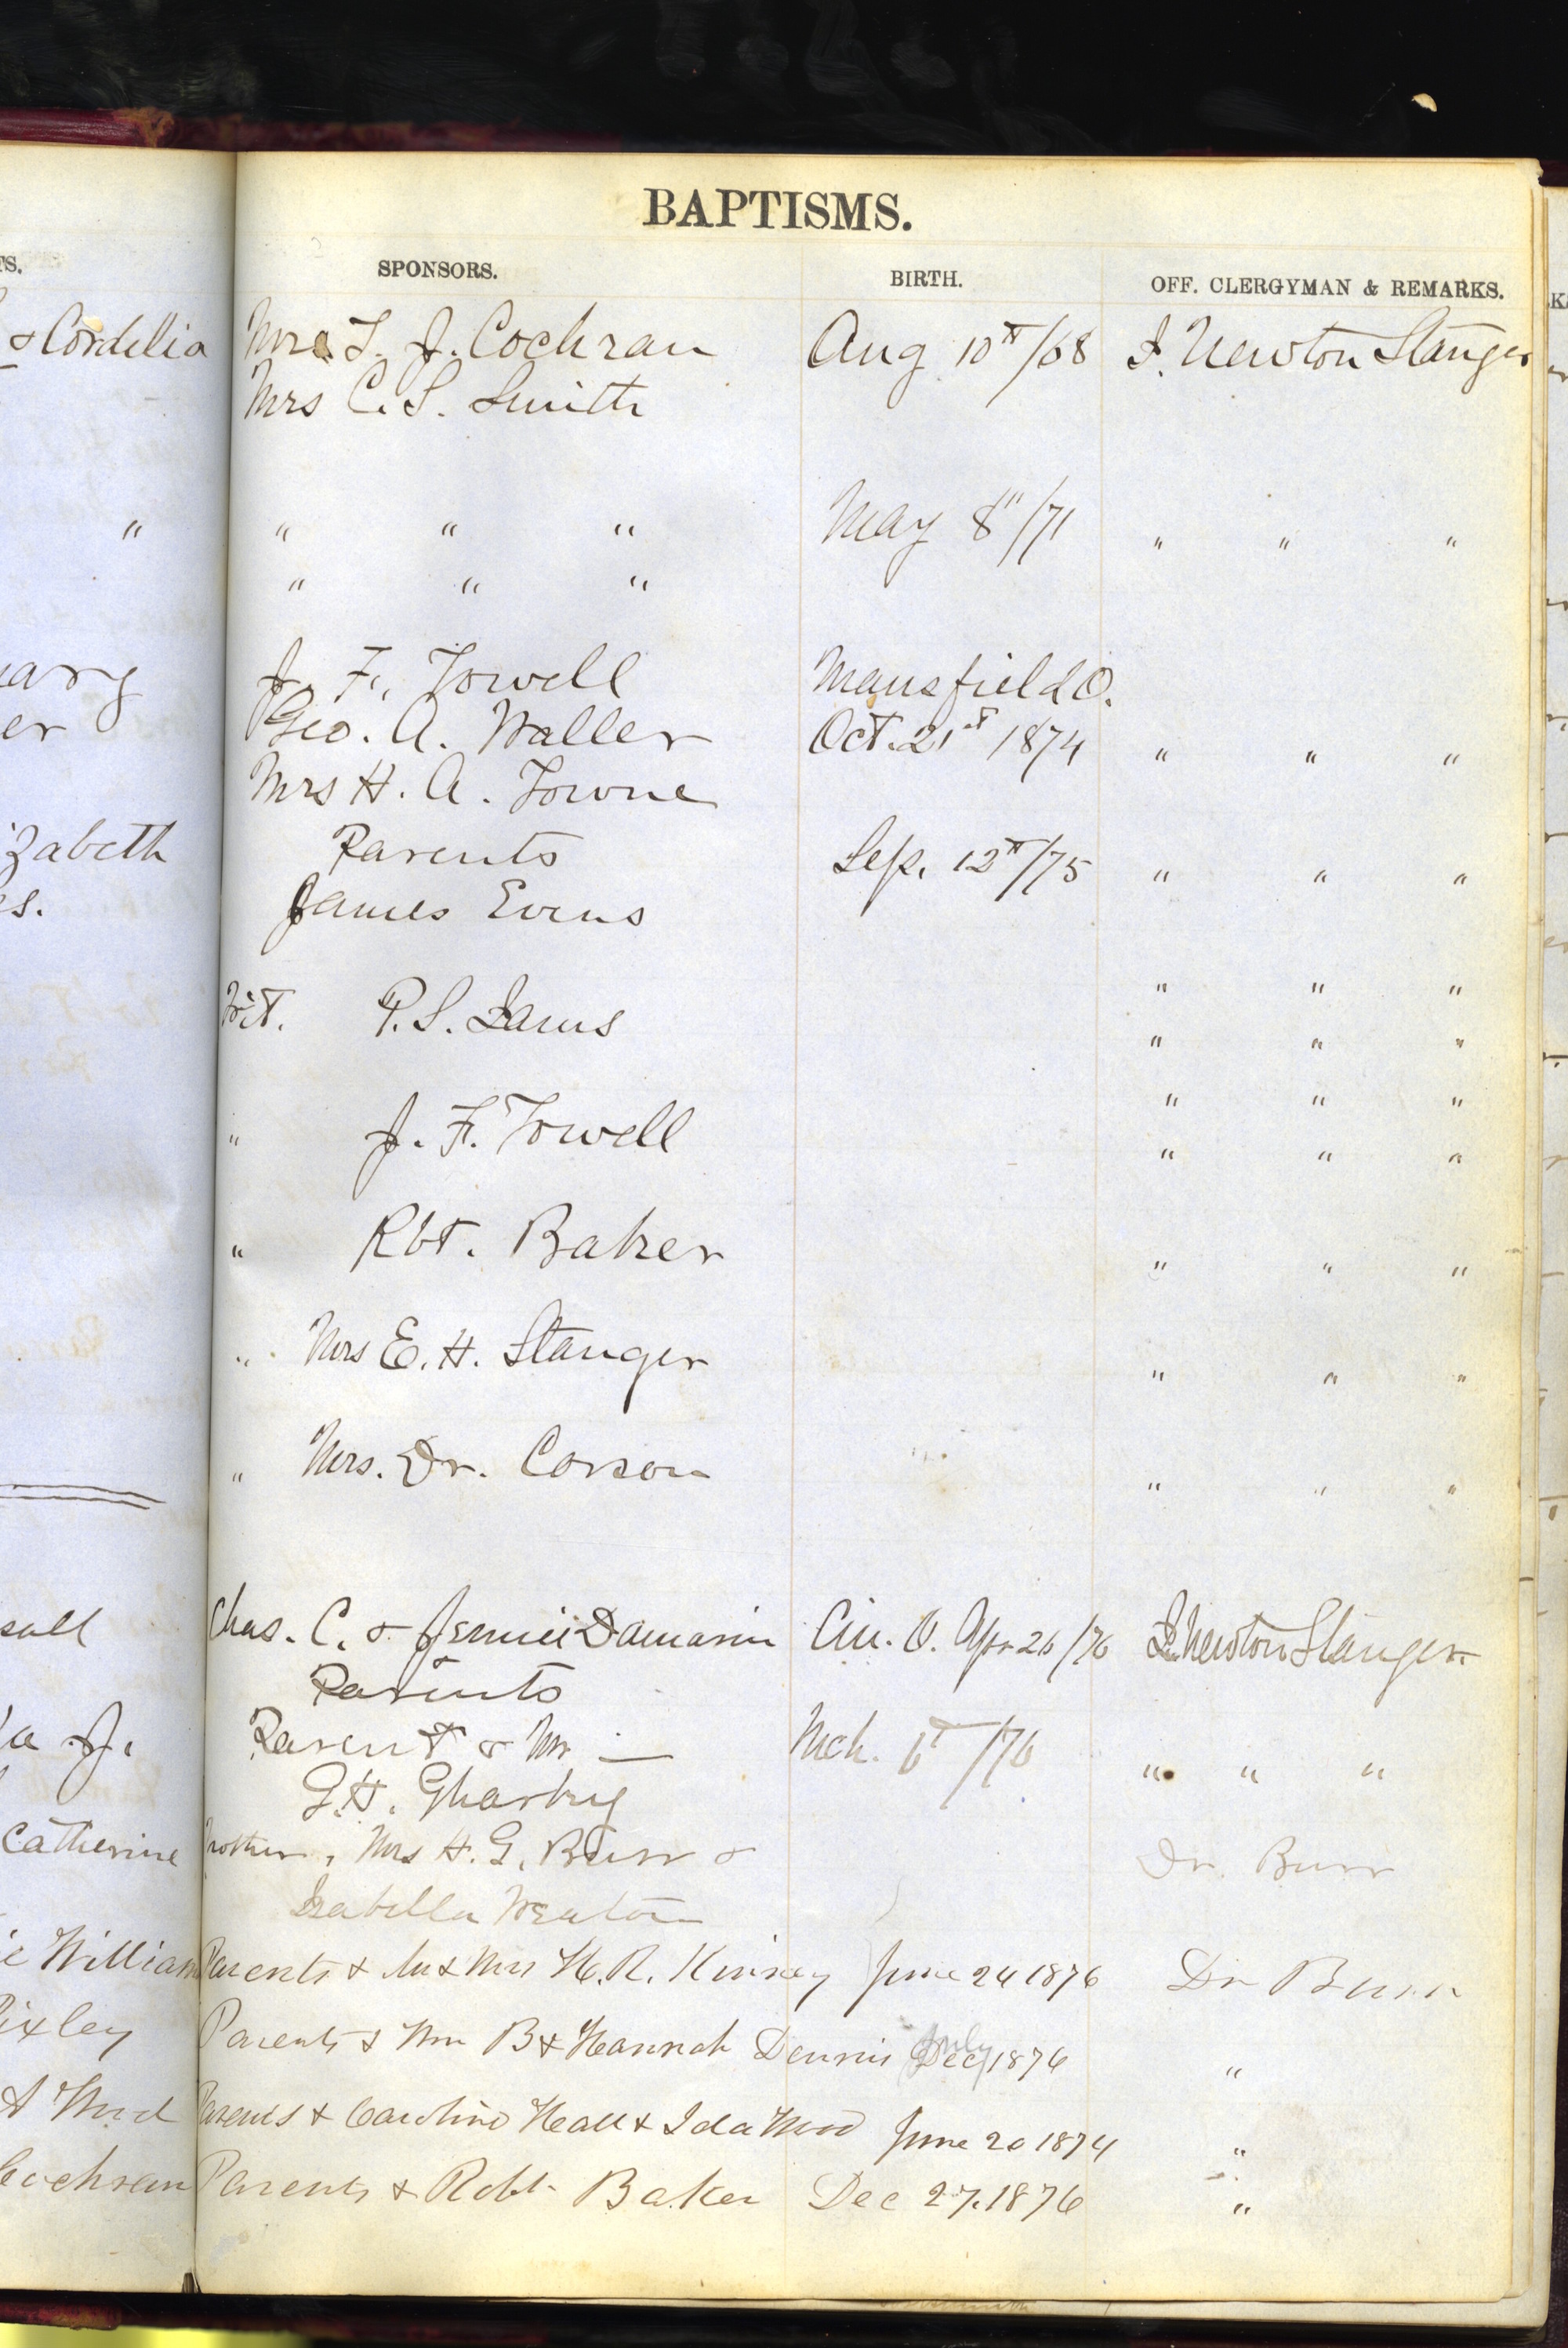 BAPTISMS.
TS. SPONSORS. BIRTH. OFF. CLERGYMAN & REMARKS.
& Cordelia Mrs T. J. Cochran Aug 10th/68 I. Newton Stanger
Mrs C. S. Smith
" " " " May 8"/71 " " "
" " "
J. F. Towell Mansfield O.
er Geo. A. Waller Oct. 21st 1874 " " "
Mrs H. A. Towne
zabeth Parents Sep. 12th/75 " " "
es. James Evens
Wit. P. S. Iams " " "
" " "
" J. F. Towell " " "
" " "
" Rbt. Baker " " "
" Mrs E. H. Stanger " " "
" Mrs. Dr. Corson " " "
Chas. C. & Jennie Damarin Cin. O. Apr 26/76 I. Newton Stanger
Parents
a J. Parent & Mr — Mch. 6th/76 " " "
G. H. Gharky
Catherine Mother, Mrs H. G. Burr & Dr. Burr
Isabella
ie William Parents & Mr & Mrs H. R. Kinsey June 24 1876 Dr Burr
ixley Parents & Wm B & Hannah Dennis Dec July 1876 "
Parents & Caroline Hall & Ida June 20 1874 "
Cochran Parents & Robt. Baker Dec 27. 1876 "